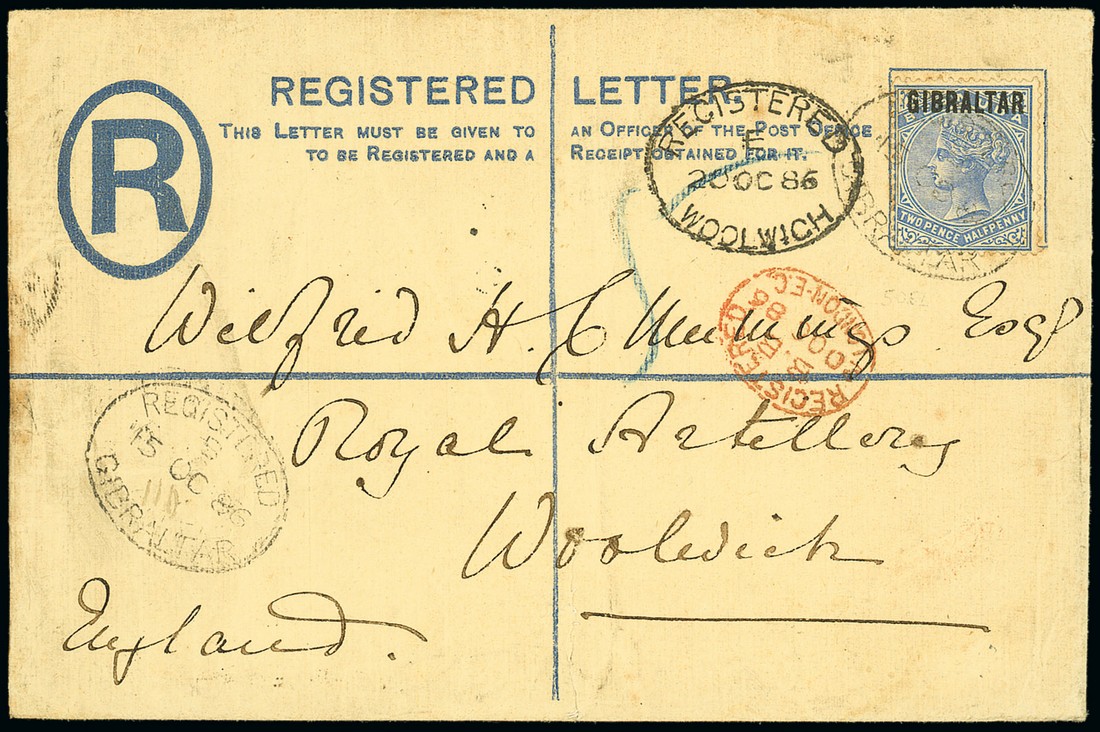 REGISTERED LETTER.
THIS LETTER MUST BE GIVEN TO AN OFFICER OF THE POST OFFICE
TO BE REGISTERED AND A RECEIPT OBTAINED FOR IT.
R
GIBRALTAR
TWO PENCE HALFPENNY
REGISTERED
E
20 OC 86
WOOLWICH
GIBRALTAR
REGISTERED
20 OC 86
LONDON-E.C.
Wilfrid H C Mummings Esqr
Royal Artillery
Woolwich
England.
REGISTERED
15 OC 86
GIBRALTAR